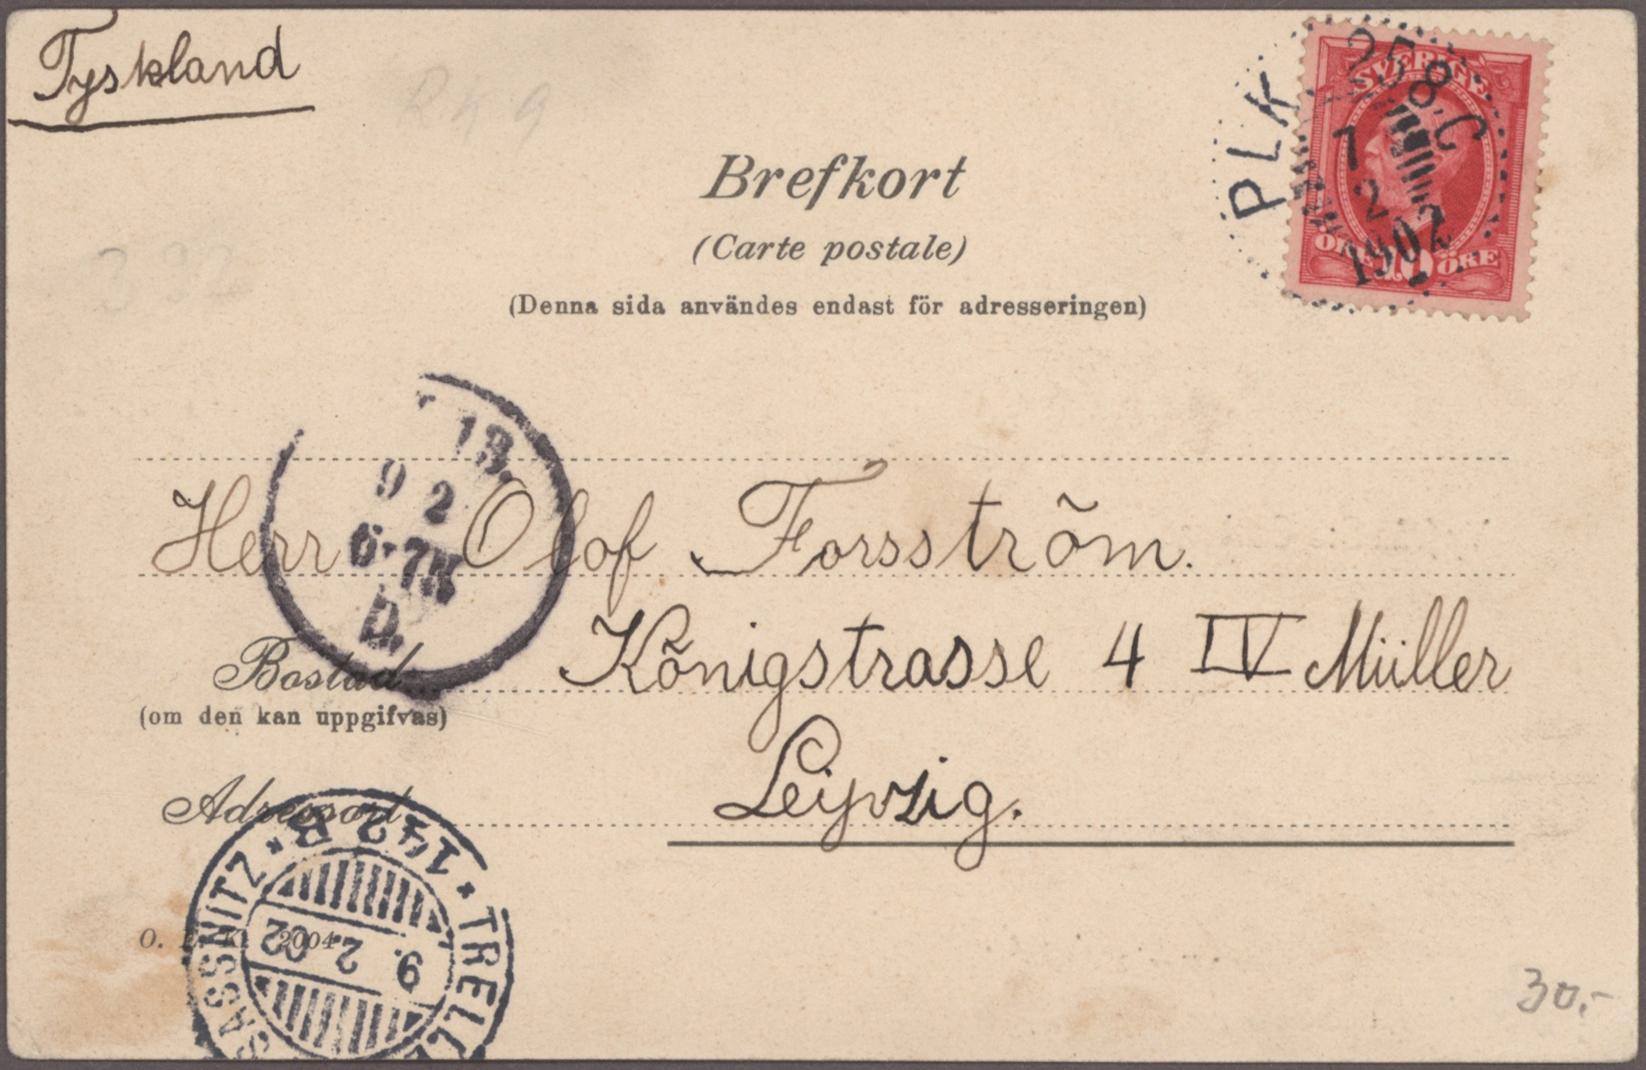 Tyskland
RK 9
PLK 258 C
7
2
1902
SVERIGE
ÖRE 10 ÖRE
Brefkort
(Carte postale)
392
(Denna sida användes endast för adresseringen)
13.
9 2
6-7N
D.
Herr Olof Forsström.
Bostad
Königstrasse 4 IV Müller
(om den kan uppgifvas)
Leipzig.
Adressort
SASSNITZ * 142 B * TRELL
9. 2. 02
2004
30.-